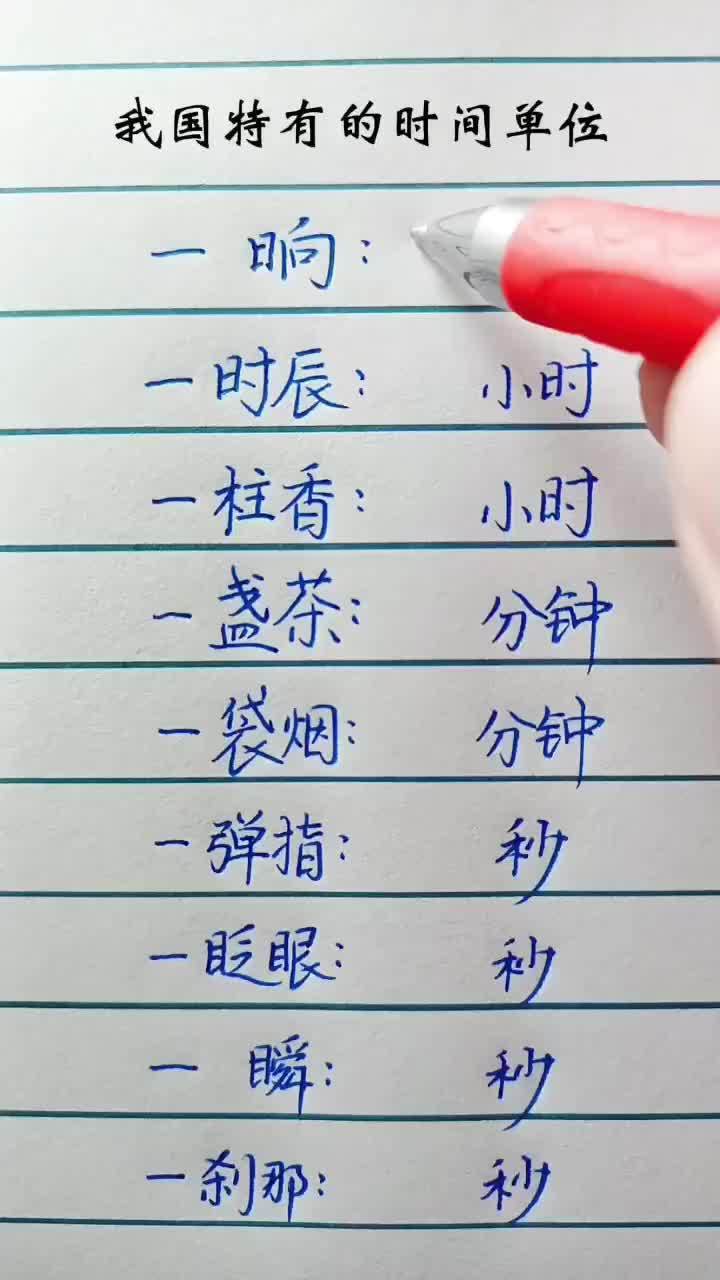 我国特有的时间单位
一晌:
一时辰: 小时
一柱香: 小时
一盏茶: 分钟
一袋烟: 分钟
一弹指: 秒
一眨眼: 秒
一瞬: 秒
一刹那: 秒